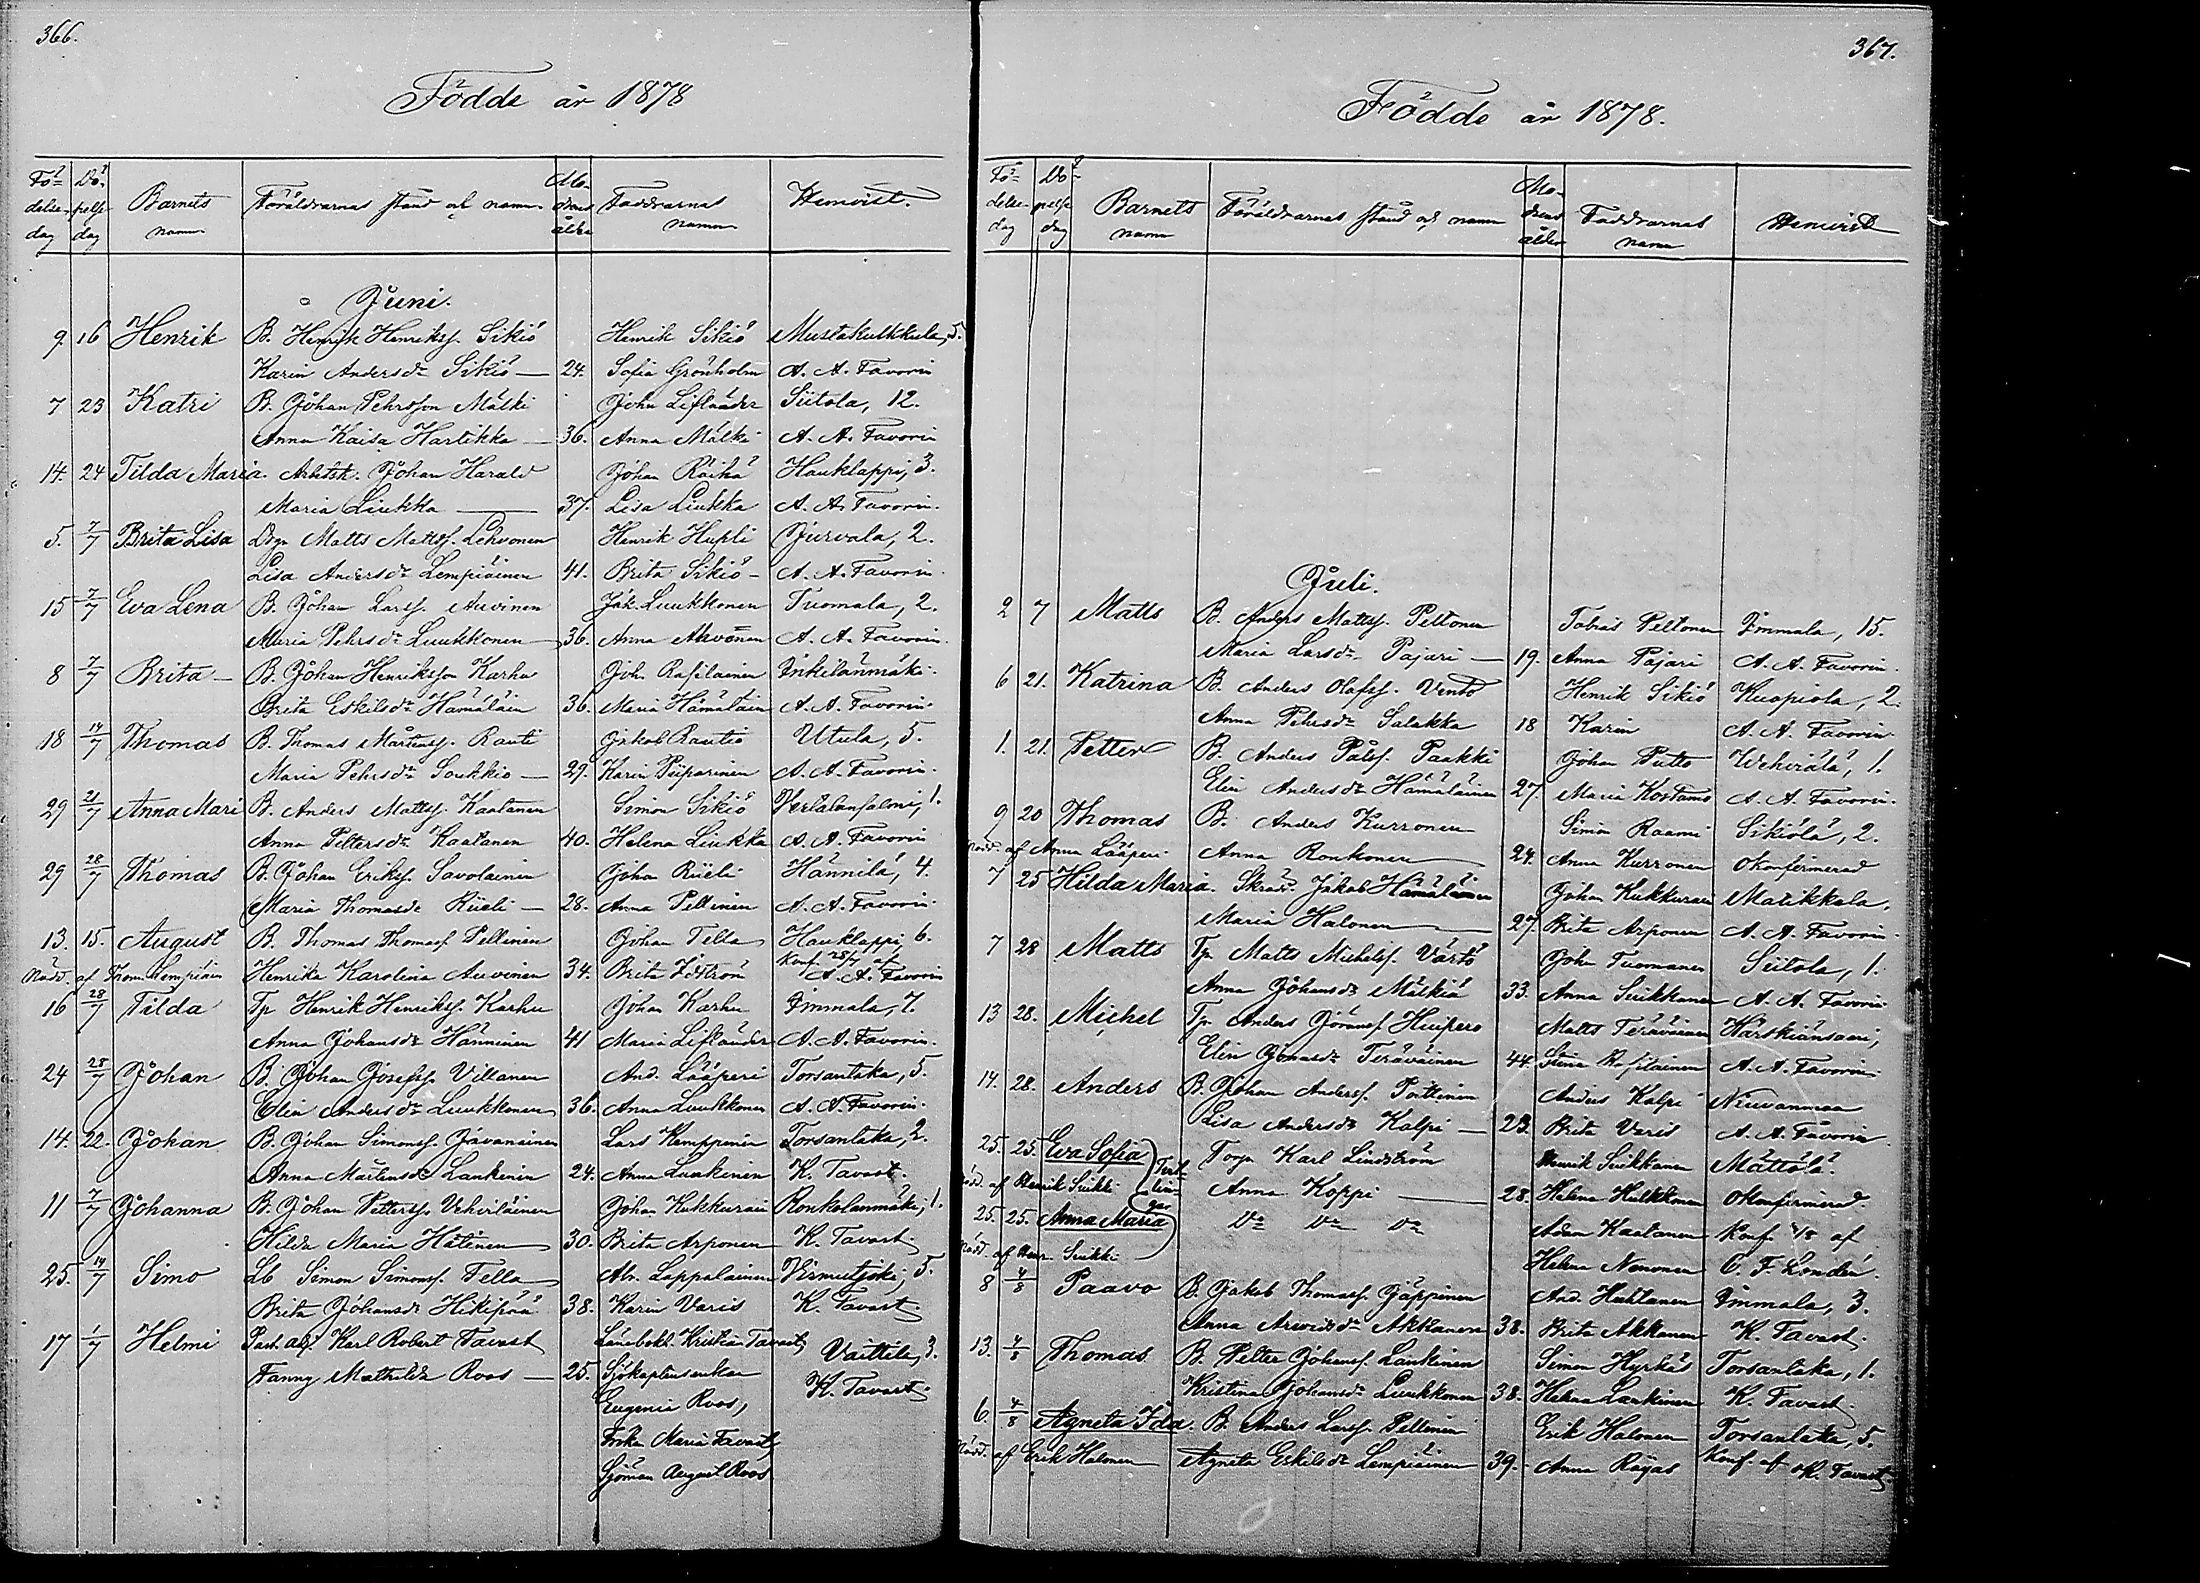 366.
Födde år 1878
Fö- delse- dag Dö- pelse dag Barnets namn Föräldrarnas stånd och namn Mo- drens ålder Faddrarnas namn Hemvist.
Juni.
9 16 Henrik B. Henrik Henrikss. Sikiö Henrik Sikiö Mustakulkkula, 5.
Karin Andersdr Sikiö — 24. Sofia Grönholm A. A. Favorin
7 23 Katri B. Johan Pehrsson Mälki John Liflander Siitola, 12.
Anna Kaisa Hartikka — 36. Anna Mälki A. A. Favorin
14. 24 Tilda Maria. Arbetsk. Johan Harald Johan Räihä Hauklappi, 3.
Maria Liukka — 37. Lisa Liukka A. A. Favorin.
5. 7/7 Brita Lisa Matts Mattss. Lehvonen Henrik Hupli Jurvala, 2.
Lisa Andersdr Lempiäinen 41. Brita Sikiö - A. A. Favorin.
15 7/7 Eva Lena B. Johan Larss. Auvinen Jak. Luukkonen Tuomala, 2.
Maria Pehrsdr Luukkonen — 36. Anna Ahvonen A. A. Favorin.
8 7/7 Brita — B. Johan Henriksson Karhu Joh. Rasilainen Inkilänmäki.
Brita Eskilsdr Hämäläin 36. Maria Hämäläin A. A. Favorin.
18 14/7 Thomas B. Thomas Mårtenss. Rauti Jakob Rautio Utula, 5.
Maria Pehrsdr Soukkio — 29. Karin Piiparinen A. A. Favorin.
29 21/7 Anna Mari B. Anders Mattss. Kaatanen Simon Sikiö 1.
Anna Pettersdr Kaatanen 40. Helena Liukka A. A. Favorin
29 28/7 Thomas B. Johan Erikss. Savolainen Johan Riieli Hännilä, 4.
Maria Thomasdr Riieli — 28. Anna Pellinen A. A. Favorin.
13. 15. August B. Thomas Thomass. Pellinen Johan Tella Hauklappi, 6.
Nödd. af Thom. Lempiäin Henrika Karolina Auvinen 34. Brita Idström Konf. 28/7 af A. A. Favorin
16 28/7 Tilda Tp Henrik Henrikss. Karhu Johan Karhu Immala, 7.
Anna Johansdr Hänninen 41 Maria Liflander A. A. Favorin.
24 28/7 Johan B. Johan Josefss. Villanen And. Lääperi Torsantaka, 5.
Elin Andersdr Luukkonen 36. Anna Luukkonen A. A. Favorin.
14. 22. Johan B. Johan Simonss. Javanainen Lars Kemppinen Torsantaka, 2.
Anna Mårtensdr Lankinen 24. Anna Lankinen K. Tavast
11 7/7 Johanna B. Johan Petterss. Vehviläinen Johan Kukkurain Ronkolanmäki, 1.
Hilda Maria Hätinen 30. Brita Arponen K. Tavast.
25. 14/7 Simo Lb Simon Simonss. Tella Abr. Lappalainen Virmutjoki, 5.
Brita Johansdr Hikipää 38. Karin Varis K. Tavast.
17 1/7 Helmi Past. adj. Karl Robert Tavast Länsbokh. Kristian Tavast, Vaittila, 3.
Fanny Mathilda Roos — 25. Sjökaptenskan K. Tavast.
Eugenia Roos,
Fröken Maria Tavast,
Sjöman August Roos
367.
Födde år 1878.
Fö- delse- dag Dö- pelse dag Barnets namn Föräldrarnas stånd och namn Mo- drens ålder Faddrarnas namn Hemvist
Juli.
2 7 Matts B. Anders Mattss. Peltonen Tobias Peltonen Immala, 15.
Maria Larsdr Pajari — 19. Anna Pajari A. A. Favorin.
6 21. Katrina B. Anders Olafss. Vento Henrik Sikiö Kuapiola, 2.
Anna Pehrsdr Salakka 18 Karin A. A. Favorin
1. 21. Petter B. Anders Pålss. Paakki Johan Putto Wehviälä, 1.
Elin Andersdr Hämäläinen 27. Maria Kostamo A. A. Favorin.
9 20 Thomas B. Anders Kurronen Simon Raami Sikiölä, 2.
Nödd. af Anna Lääperi Anna Ronkonen — 24. Anna Kurronen Okonfirmerad
7 25 Hilda Maria. Skradd. Jakob Hämäläinen Johan Kukkurain Matikkala.
Maria Halonen — 27. Brita Arponen A. A. Favorin.
7 28 Matts Tp Matts Michelss. Värtö John Tuomanen Siitola, 1.
Anna Johansdr Mälkiä 33. Anna Suikkanen A. A. Favorin
13 28. Michel Tp Anders Göranss. Huipero Matts Teräväinen Härskiänsaari,
Elin Jonasdr Teräväinen 44. Stina Rasilainen A. A. Favorin
14. 28. Anders B. Johan Anderss. Pätkinen Anders Kalpi Niuvanmaa
Lisa Andersdr Kalpi — 23. Brita Varis A. A. Favorin
25. 25. Eva Sofia Torp. Karl Lindström Henrik Suikkanen Mättölä.
Nödd. af Henrik Suikki Tvil- lin- gar Anna Koppi — 28. Helena Hulkkonen Okonfirmerad.
25. 25. Anna Maria Do Do Do Adam Kaatanen Konf. 4/8 af
Nödd. af Henr. Suikki Helena Nenonen C. F. Londén.
8 4/8 Paavo B. Jakob Thomass. Jäppinen And. Huhtanen Immala, 3.
Anna Arvidsdr Akkanen 38. Brita Akkanen K. Tavast.
13. 4/8 Thomas B. Petter Johanss. Lankinen Simon Hyrkäs Torsantaka, 1.
Kristina Johansdr Luukkonen 38. Helena Lankinen K. Tavast.
6. 4/8 Agneta Ida. B. Anders Larss. Pellinen Erik Halonen Torsantaka, 5.
Nödd. af Erik Halonen Agneta Eskilsdr Lempiäinen 39. Anna Rajas Konf. af K. Tavast.